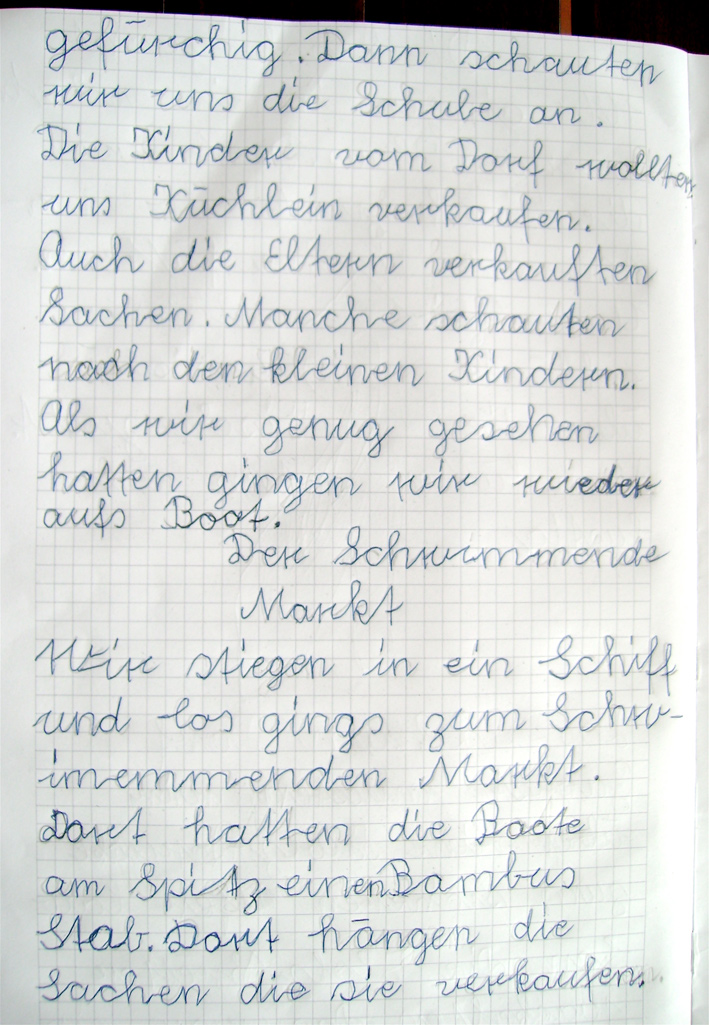 gefürchig. Dann schauten
wir uns die Schule an.
Die Kinder vom Dorf wollten
uns Küchlein verkaufen.
Auch die Eltern verkauften
Sachen. Manche schauten
nach den kleinen Kindern.
Als wir genug gesehen
hatten gingen wir wieder
aufs Boot.
Der Schwimmende
Markt
Wir stiegen in ein Schiff
und los gings zum Schw-
imemmenden Markt.
Dort hatten die Boote
am Spitz einen Bambus
Stab. Dort hängen die
Sachen die sie verkaufen.